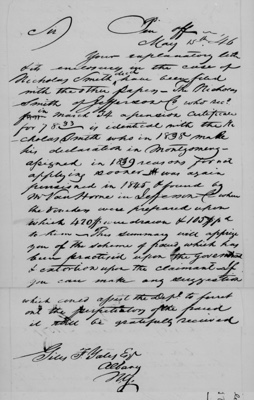 Sir Pen off
May 15th 46
Your explanatory letter
& its enclosures in the case of
Nicholas Smith have been filed
with the other papers - The Nicholas
Smith of Jefferson Co who rec'd
in march 34 a pension certificate
for 1833 is identical with the Ni
cholas Smith who in 1838 made
his declaration in Montgomery
assigned in 1839 reasons for not
applying sooner & was again
pensioned in 1845 & found by
Mr Van Horne in Jefferson Co when
the vouchers were prepared upon
which was drawn &
to them - This summary will apprise
you of the scheme of fraud which has
been practised upon the Government
& extortion upon the claimant - If
you can make any suggestion
which could assist the dep't to ferret
out the perpetrators of the fraud
it will be gratefully received
Giles F Yates Esq
Albany
NY.